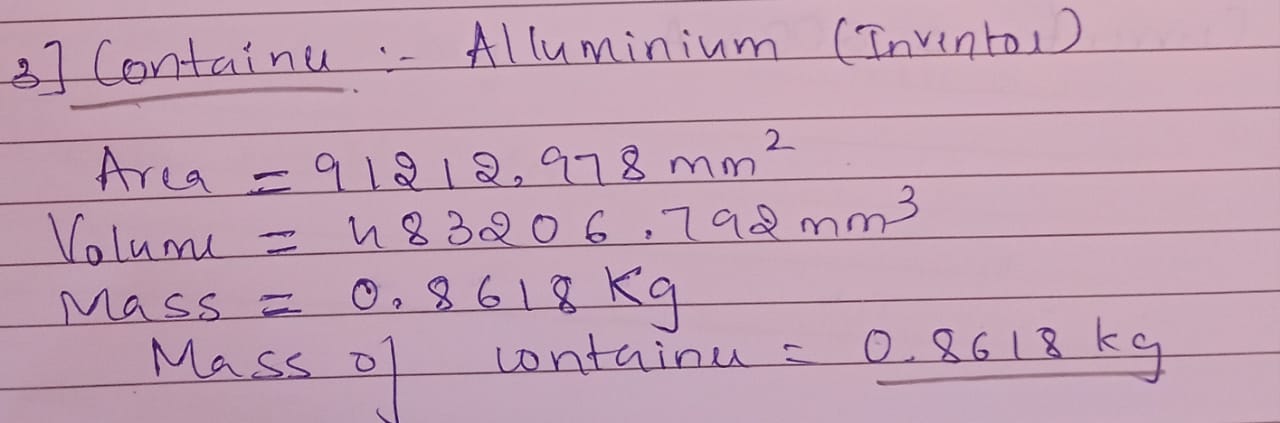 3] Container :- Alluminium (Inventor)
Area = 91212.978 mm²
Volume = 483206.792 mm³
Mass = 0.8618 Kg
Mass of container = 0.8618 kg